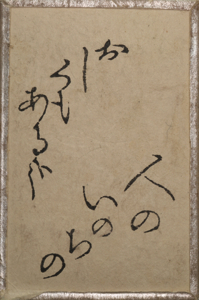 人の
いのちの
おし
くも
ある哉